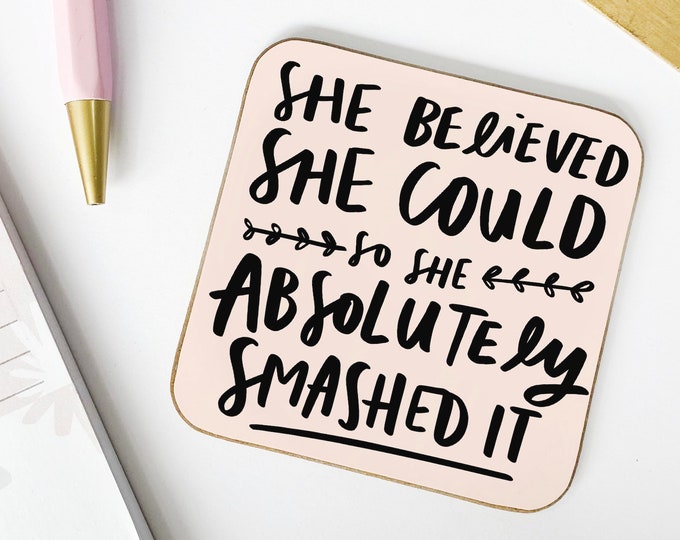 SHE BELiEVED
SHE COULD
SO SHE
ABSOLUTEly
SMASHED IT